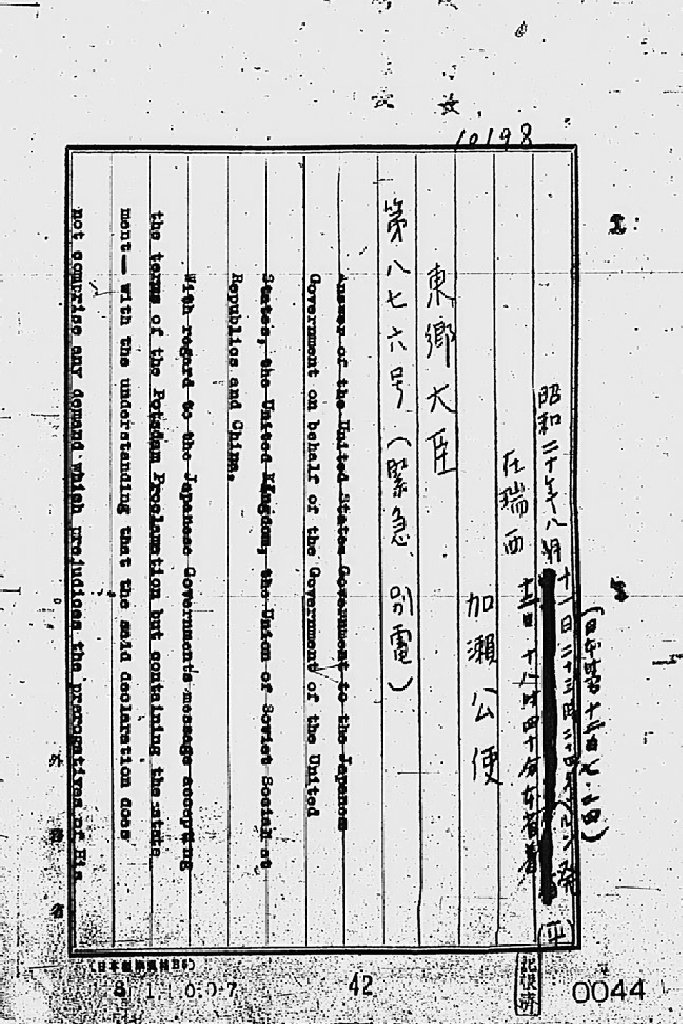 10198
(日本時 十二日 七・二四)
昭和二十年八月十一日二十三時二十四分 ベルン発 (平)
十二日・十八時四十分本省着
在瑞西
加瀬公使
東郷大臣
第八七六号 (緊急、別電)
Answer of the United States Government to the Japanese
Government on behalf of the Government of the United
States, the United Kingdom, the Union of Soviet Socialist
Republics and China.
With regard to the Japanese Governments message accepting
the terms of the Potsdam Proclamation but containing the state
ment— with the understanding that the said declaration does
not comprise any demand which prejudices the prerogatives of His
外務省
(日本標準規格B5)
42
記録済
0044